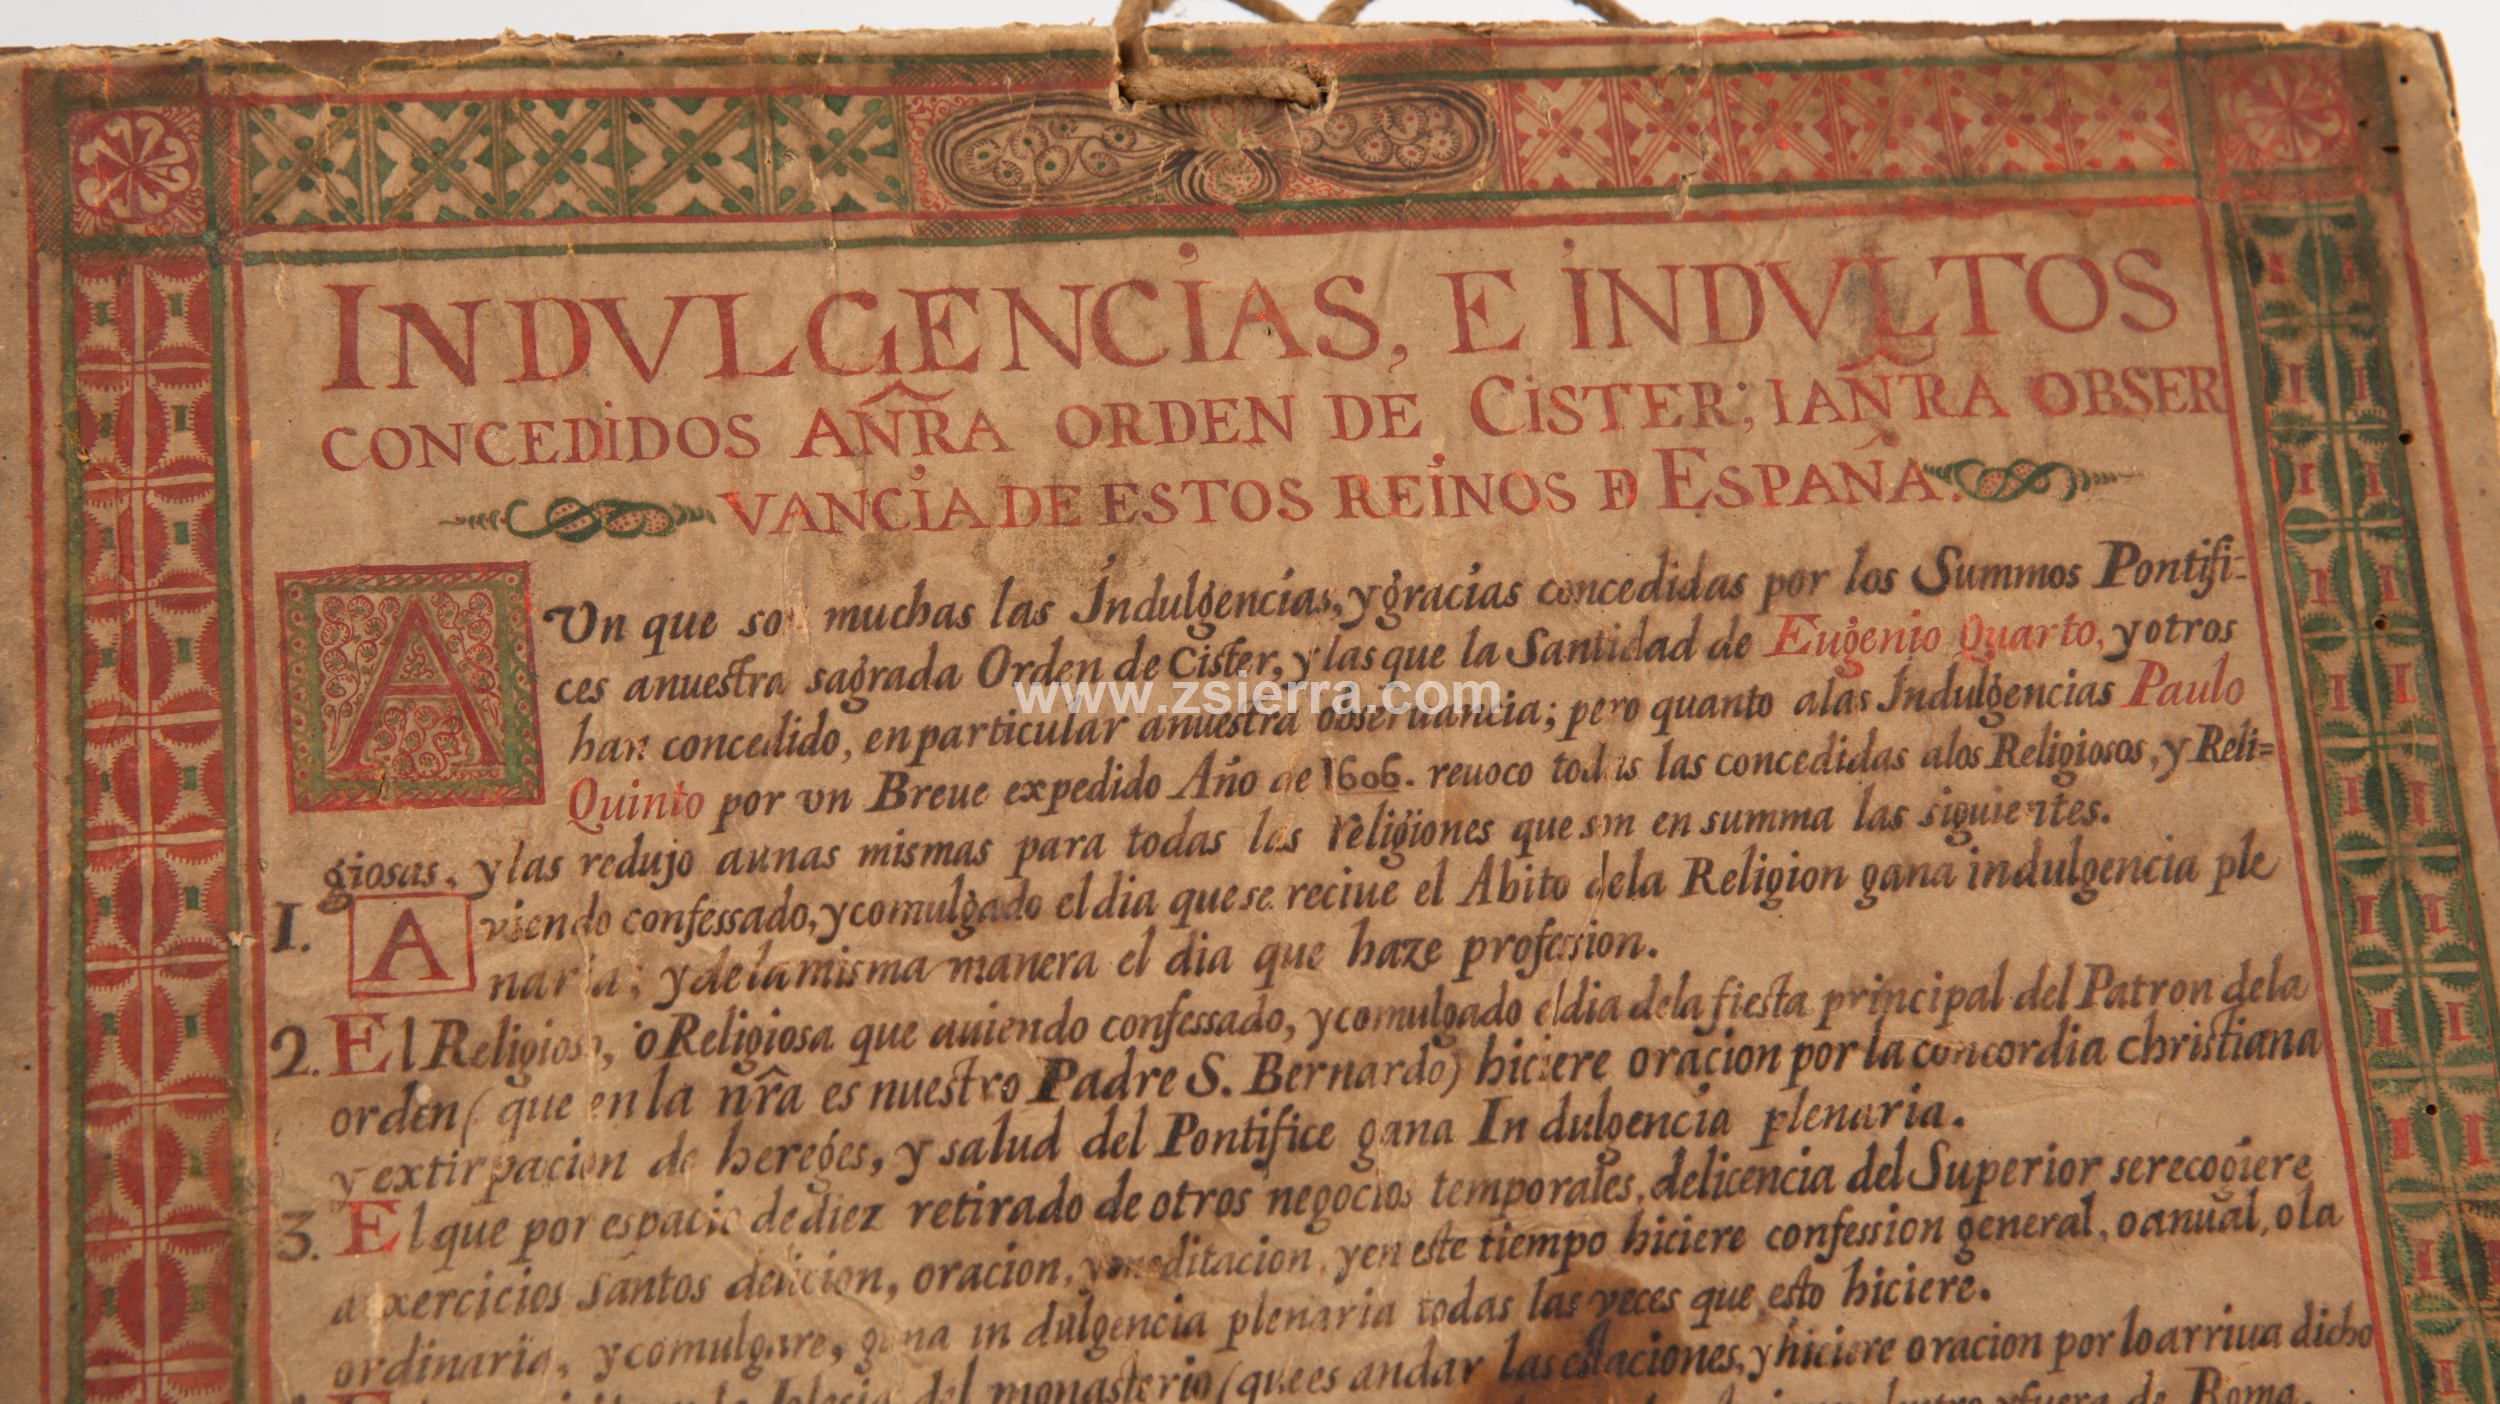 INDVLGENCIAS, E INDVLTOS
CONCEDIDOS AÑRA ORDEN DE CISTER; IAÑRA OBSER
VANCIA DE ESTOS REINOS D ESPAÑA.
AUn que son muchas las Indulgencias, y gracias concedidas por los Summos Pontifi-
ces anuestra sagrada Orden de Cister, y las que la Santidad de Eugenio Quarto, y otros
han concedido, en particular anuestra obseruancia; pero quanto alas Indulgencias Paulo
Quinto por vn Breue expedido Año de 1606. reuoco todas las concedidas alos Religiosos, y Reli=
giosas, y las redujo aunas mismas para todas las religiones que son en summa las siguientes.
1. Aviendo confessado, y comulgado el dia que se reciue el Abito dela Religion gana indulgencia ple
naria; y de la misma manera el dia que haze profession.
2. El Religioso, o Religiosa que auiendo confessado, y comulgado el dia dela fiesta principal del Patron dela
orden ( que en la nr̃a es nuestro Padre S. Bernardo) hiciere oracion por la concordia christiana
y extirpacion de hereges, y salud del Pontifice gana Indulgencia plenaria.
3. El que por espacio de diez retirado de otros negocios temporales, de licencia del Superior se recogiere
a exercicios santos de licion, oracion, y meditacion, y en este tiempo hiciere confession general, o anual, o la
ordinaria, y comulgare, gana indulgencia plenaria todas las veces que esto hiciere.
la Iglesia del monasterio ( que es andar las estaciones, y hiciere oracion por lo arriua dicho
dentro y fuera de Roma.
www.zsierra.com